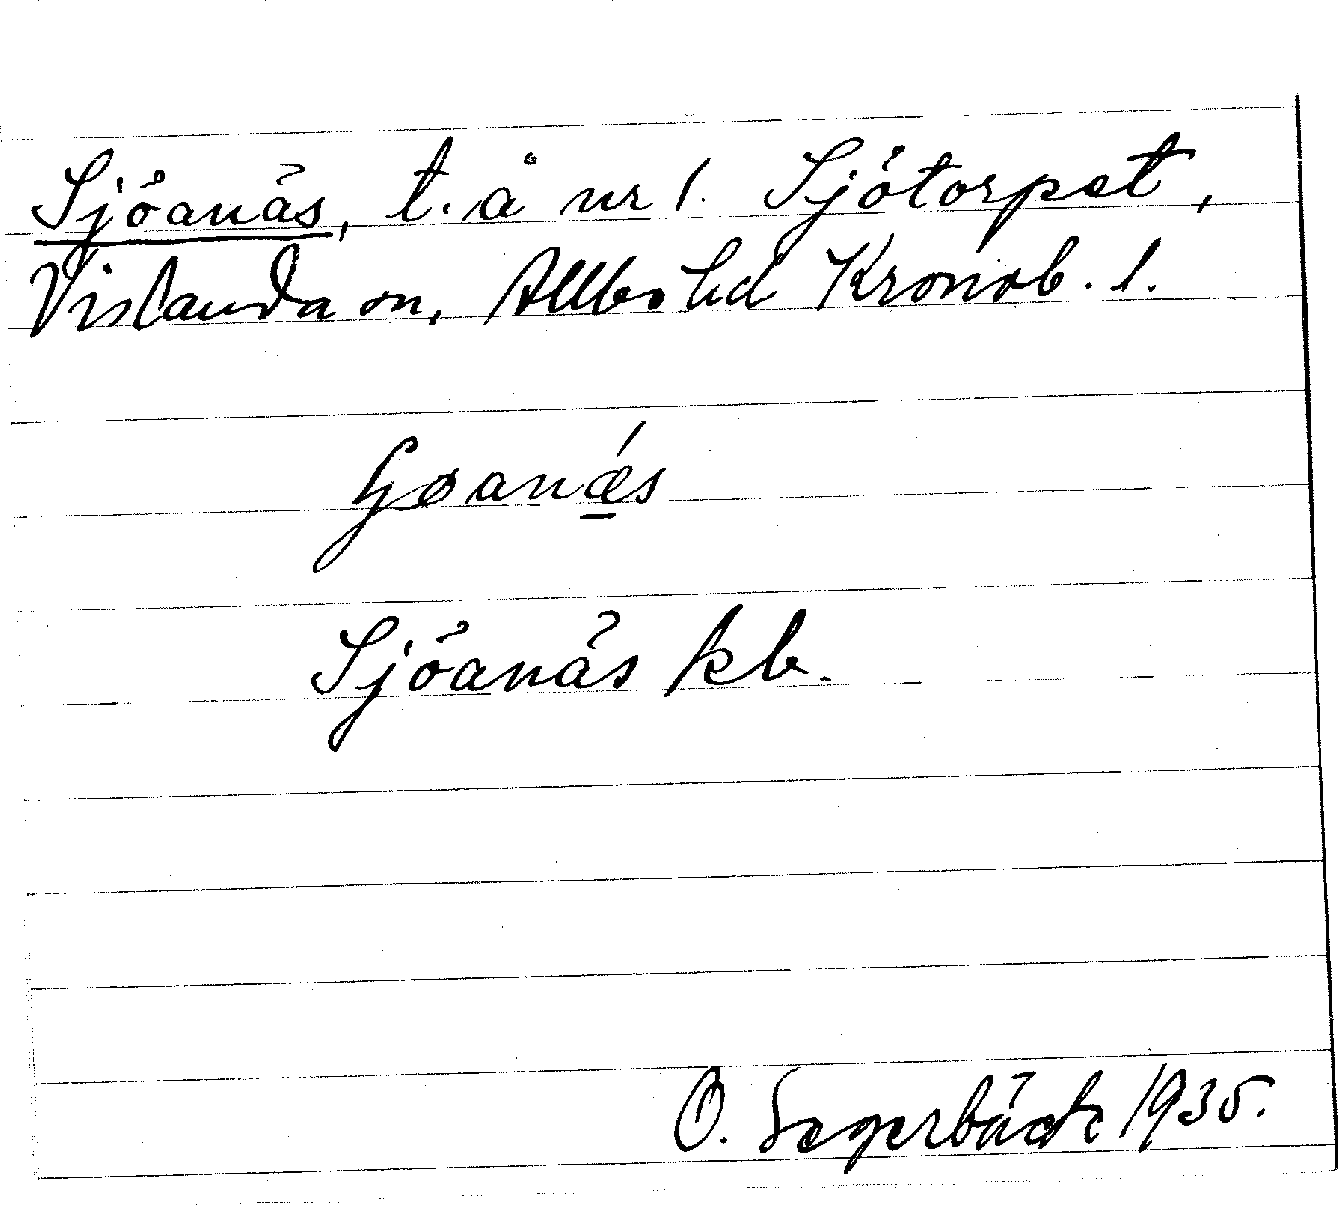 Sjöanäs, t. å nr 1. Sjötorpet,
Vislanda sn, Allbo hd Kronob. l.
Sjöanäs kb.
O. Segerbäck 1935.